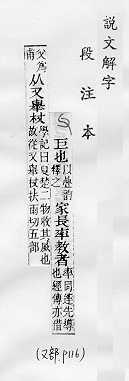 說文解字
段注本
巨也以疊韵釋之家長率教者率同䢦先導也經傳亦借
父爲甫从又舉杖學記曰夏楚二物收其威也故從又舉杖扶雨切五部
(又部.P116)